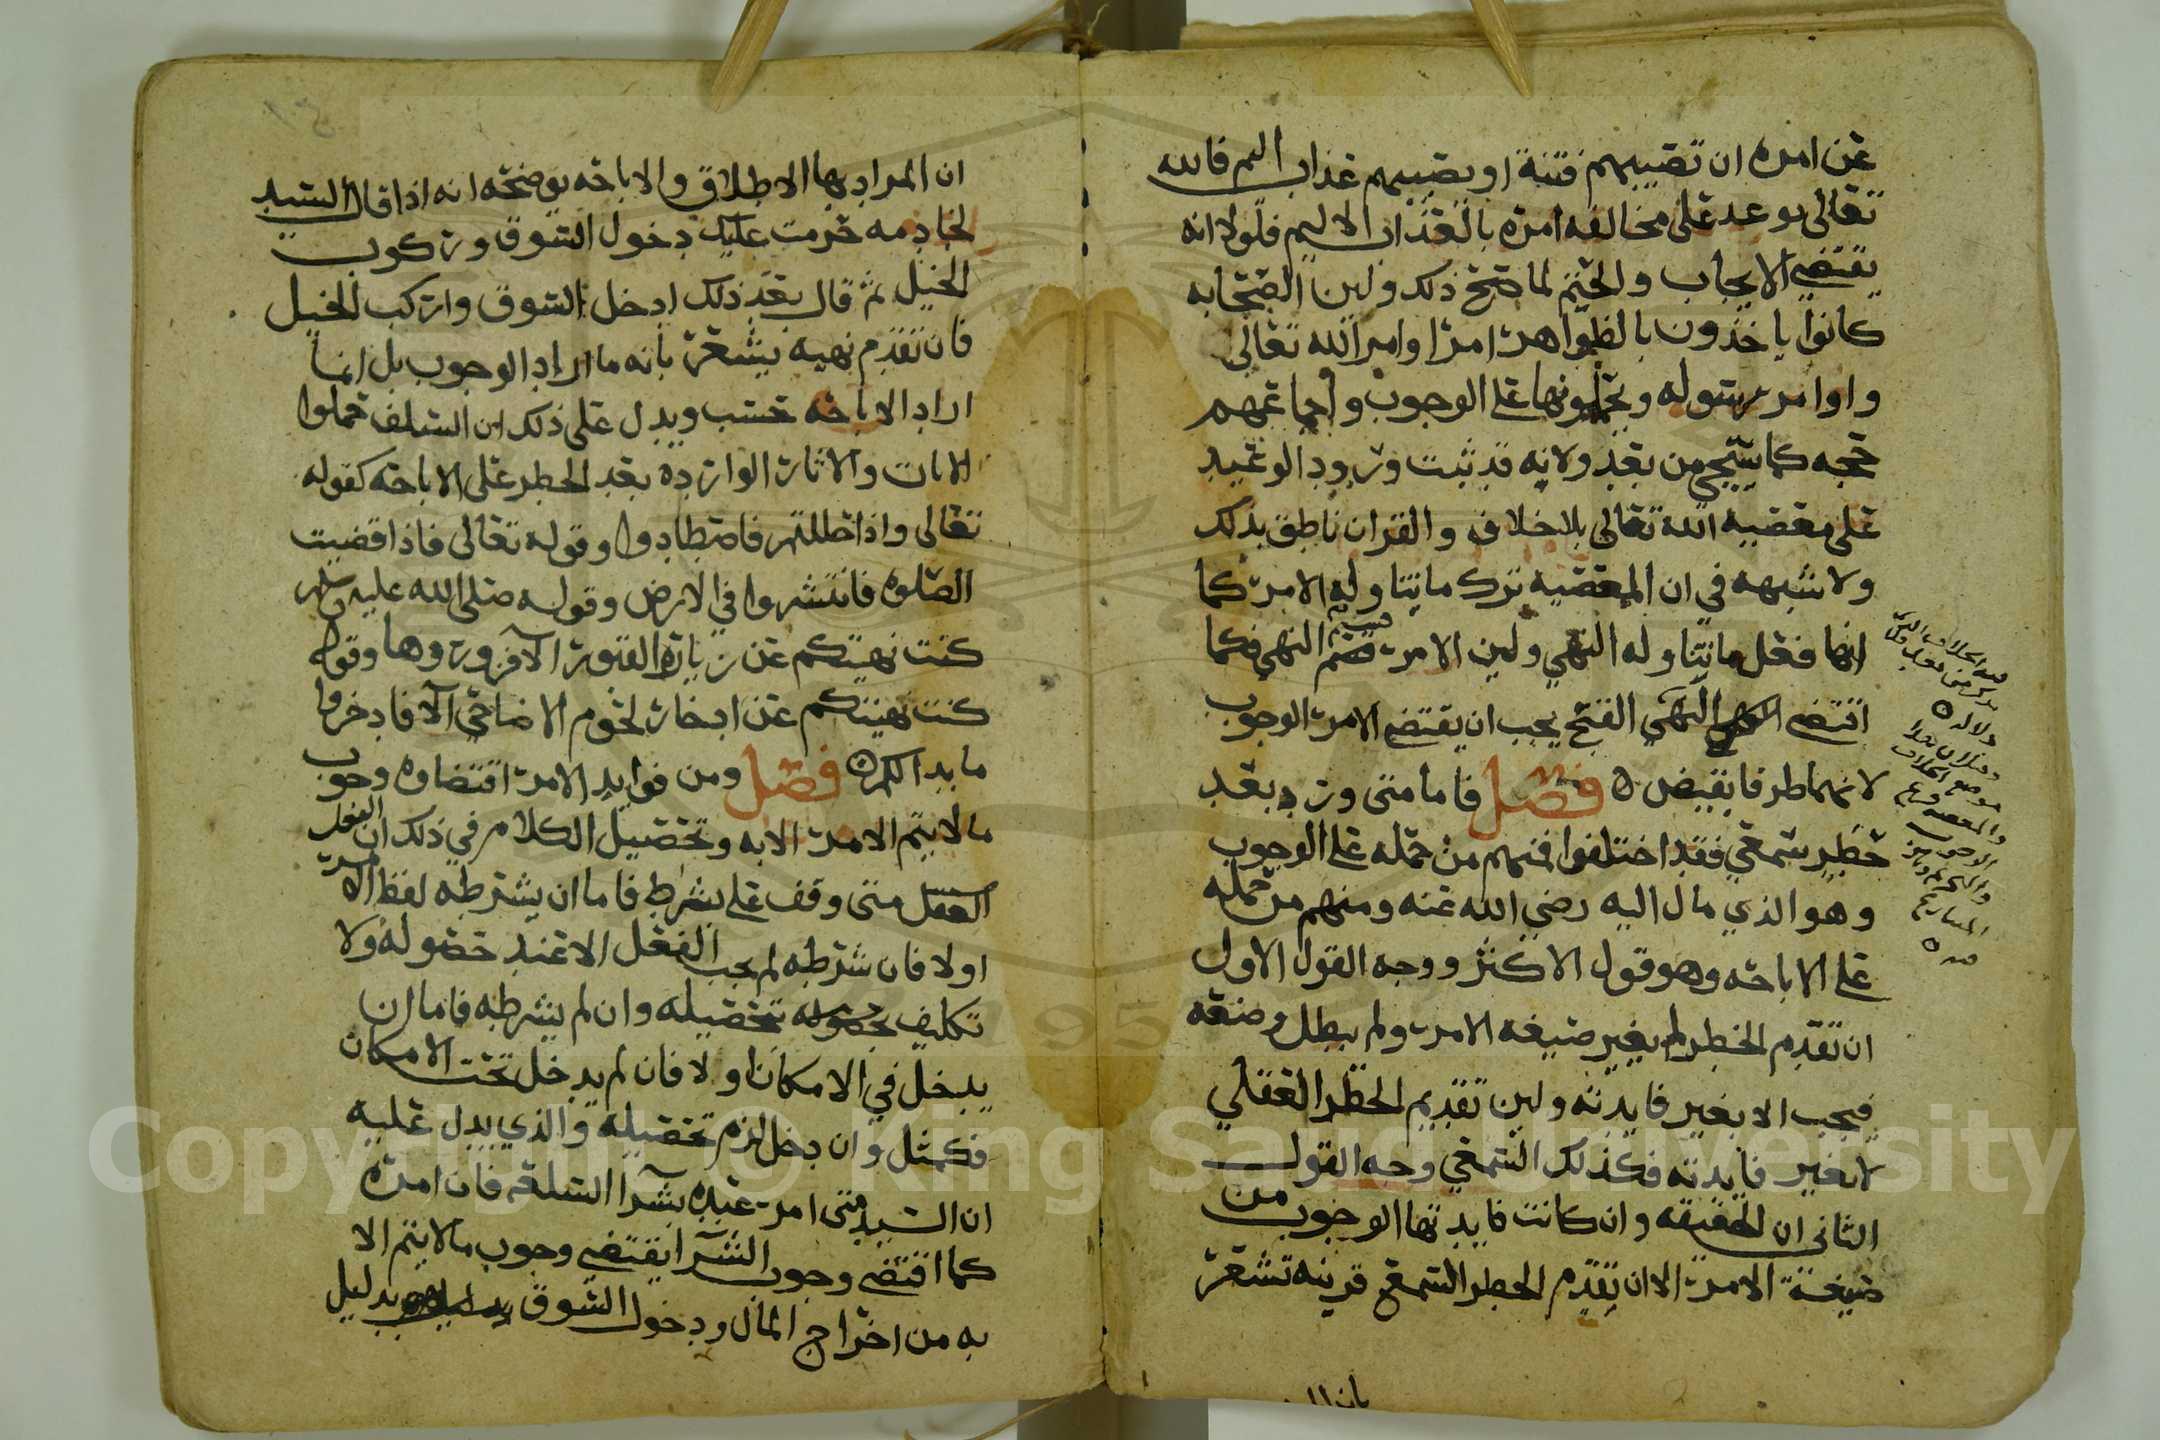 عن امره ان تصيبهم فتنة او يصيبهم عذاب اليم فالله
تعالى توعد على مخالفه امره بالعذاب الاليم فلولا انه
يقتضي الايجاب والحتم لما صح ذلك ولين الصحابه
كانوا ياخذون بالظواهر امرا وامر الله تعالى
واوامر رسوله ويحملونها على الوجوب واجماعهم
حجه كما من بعد ولانه قد ثبت ورود الوعيد
على معصيه الله تعالى بلا خلاف والقران ناطق بذلك
ولا شبهه في ان المعصيه ترك ما يتناوله الامر كما
انها فعل ما يتناوله النهي ولين الامر النهي فكما
اقتضى النهي القبح يجب ان يقتضي الامر الوجوب
لانهما طرفا نقيض ه فصل فاما متى ورد بعد
حظر سمعي فقد اختلفوا فمنهم من حمله على الوجوب
وهو الذي مال اليه رضي الله عنه ومنهم من حمله
على الاباحه وهو قول الاكثر ووجه القول الاول
ان تقدم الحظر لم يغير صيغه الامر ولم يبطل وضعه
فيجب الا يغير فايدته ولين تقديم الحظر العقلي
لا يغير فايدته فكذلك السمعي وجه القول
الثانى ان الحقيقه وان كانت فايدتها الوجوب من
صيغة الامر الا ان تقدم الحظر السمعي قرينه تشعر
ان المراد بها الاطلاق والاباحه يوضحه انه اذا قال السيد
لخادمه حرمت عليك دخول السوق وركوب
الخيل ثم قال بعد ذلك ادخل السوق واركب الخيل
فان تقدم نهيه يشعر بانه ما اراد الوجوب بل انما
اراد الاباحه حسب ويدل على ذلك ان السلف حملوا
الايات والاثار الوارده بعد الحظر على الاباحه كقوله
تعالى واذا حللتم فاصطادوا وقوله تعالى فاذا قضيت
الصلوه فانتشروا في الارض وقوله صلى الله عليه وسلم
كنت نهيتكم عن زيارة القبور الا فزوروها وقوله
كنت نهيتكم عن ادخار لحوم الاضاحي الا فادخروا
ما بدا لكم ه فصل ومن فوايد الامر اقتضاوه وجوب
ما لا يتم الامر الا به وتحصيل الكلام في ذلك ان الفعل
متى وقف على شرط فاما ان يشترطه لفظ الامر
اولا فان شرطه لم يجب الفعل الا عند حصوله ولا
تكليف بتحصيله وان لم يشرطه فاما ان
يدخل في الامكان اولا فان لم يدخل تحت الامكان
وان دخل لزم تحصيله والذي يدل عليه
ان السيد متى امر عبده بشرا السلعه فان امره
كما اقتضى وجوب الشرا يقتضي وجوب ما لا يتم الا
به من اخراج المال ودخول السوق بدليل